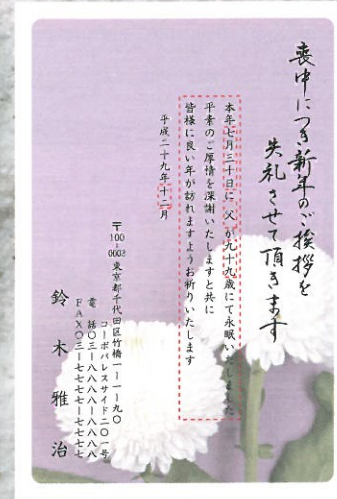 喪中につき新年のご挨拶を
失礼させて頂きます
本年七月三十日に 父 が九十九歳にて永眠いたしました
平素のご厚情を深謝いたしますと共に
皆様に良い年が訪れますようお祈りいたします
平成二十九年十二月
〒100-0003 東京都千代田区竹橋一ー一ー九〇
コーポパレスサイド二〇一号
電話〇三ー八八八八ー八八八八
FAX〇三ー七七七七ー七七七七
鈴木雅治